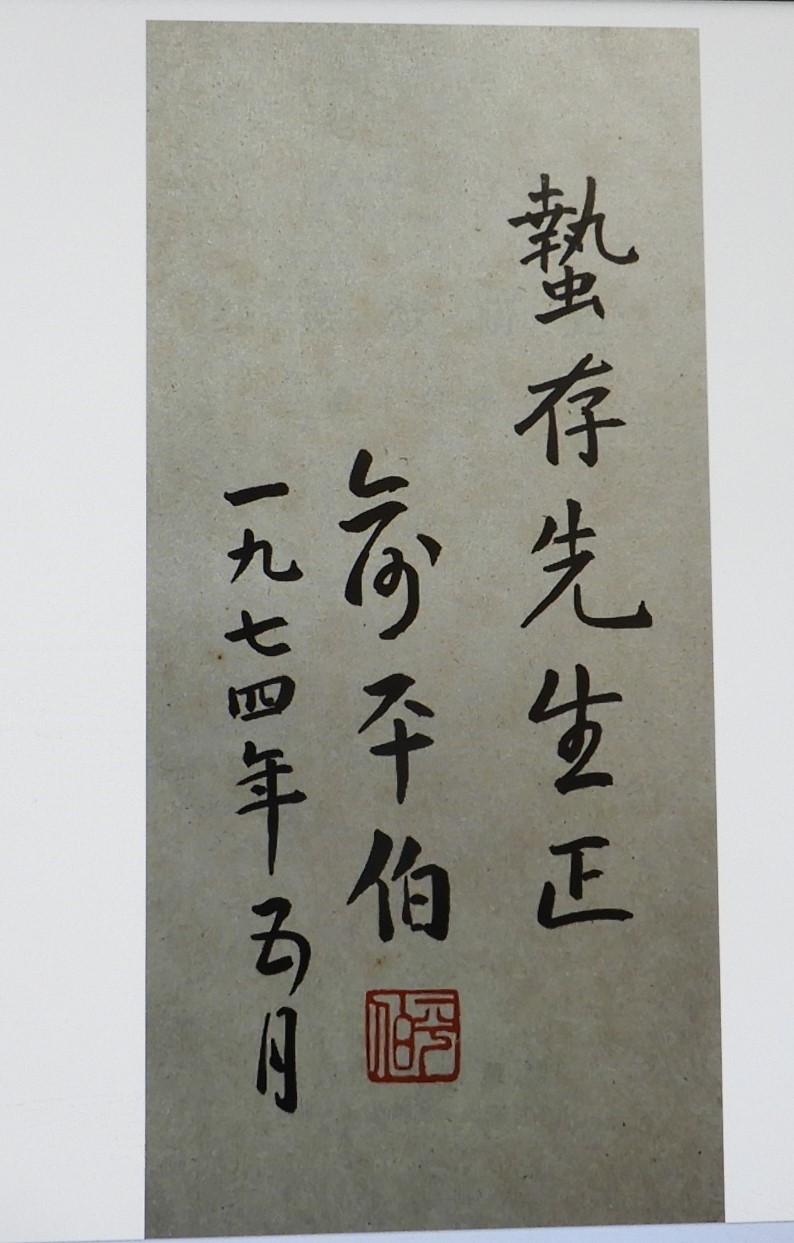 蟄存先生正
俞平伯
一九七四年五月
平伯